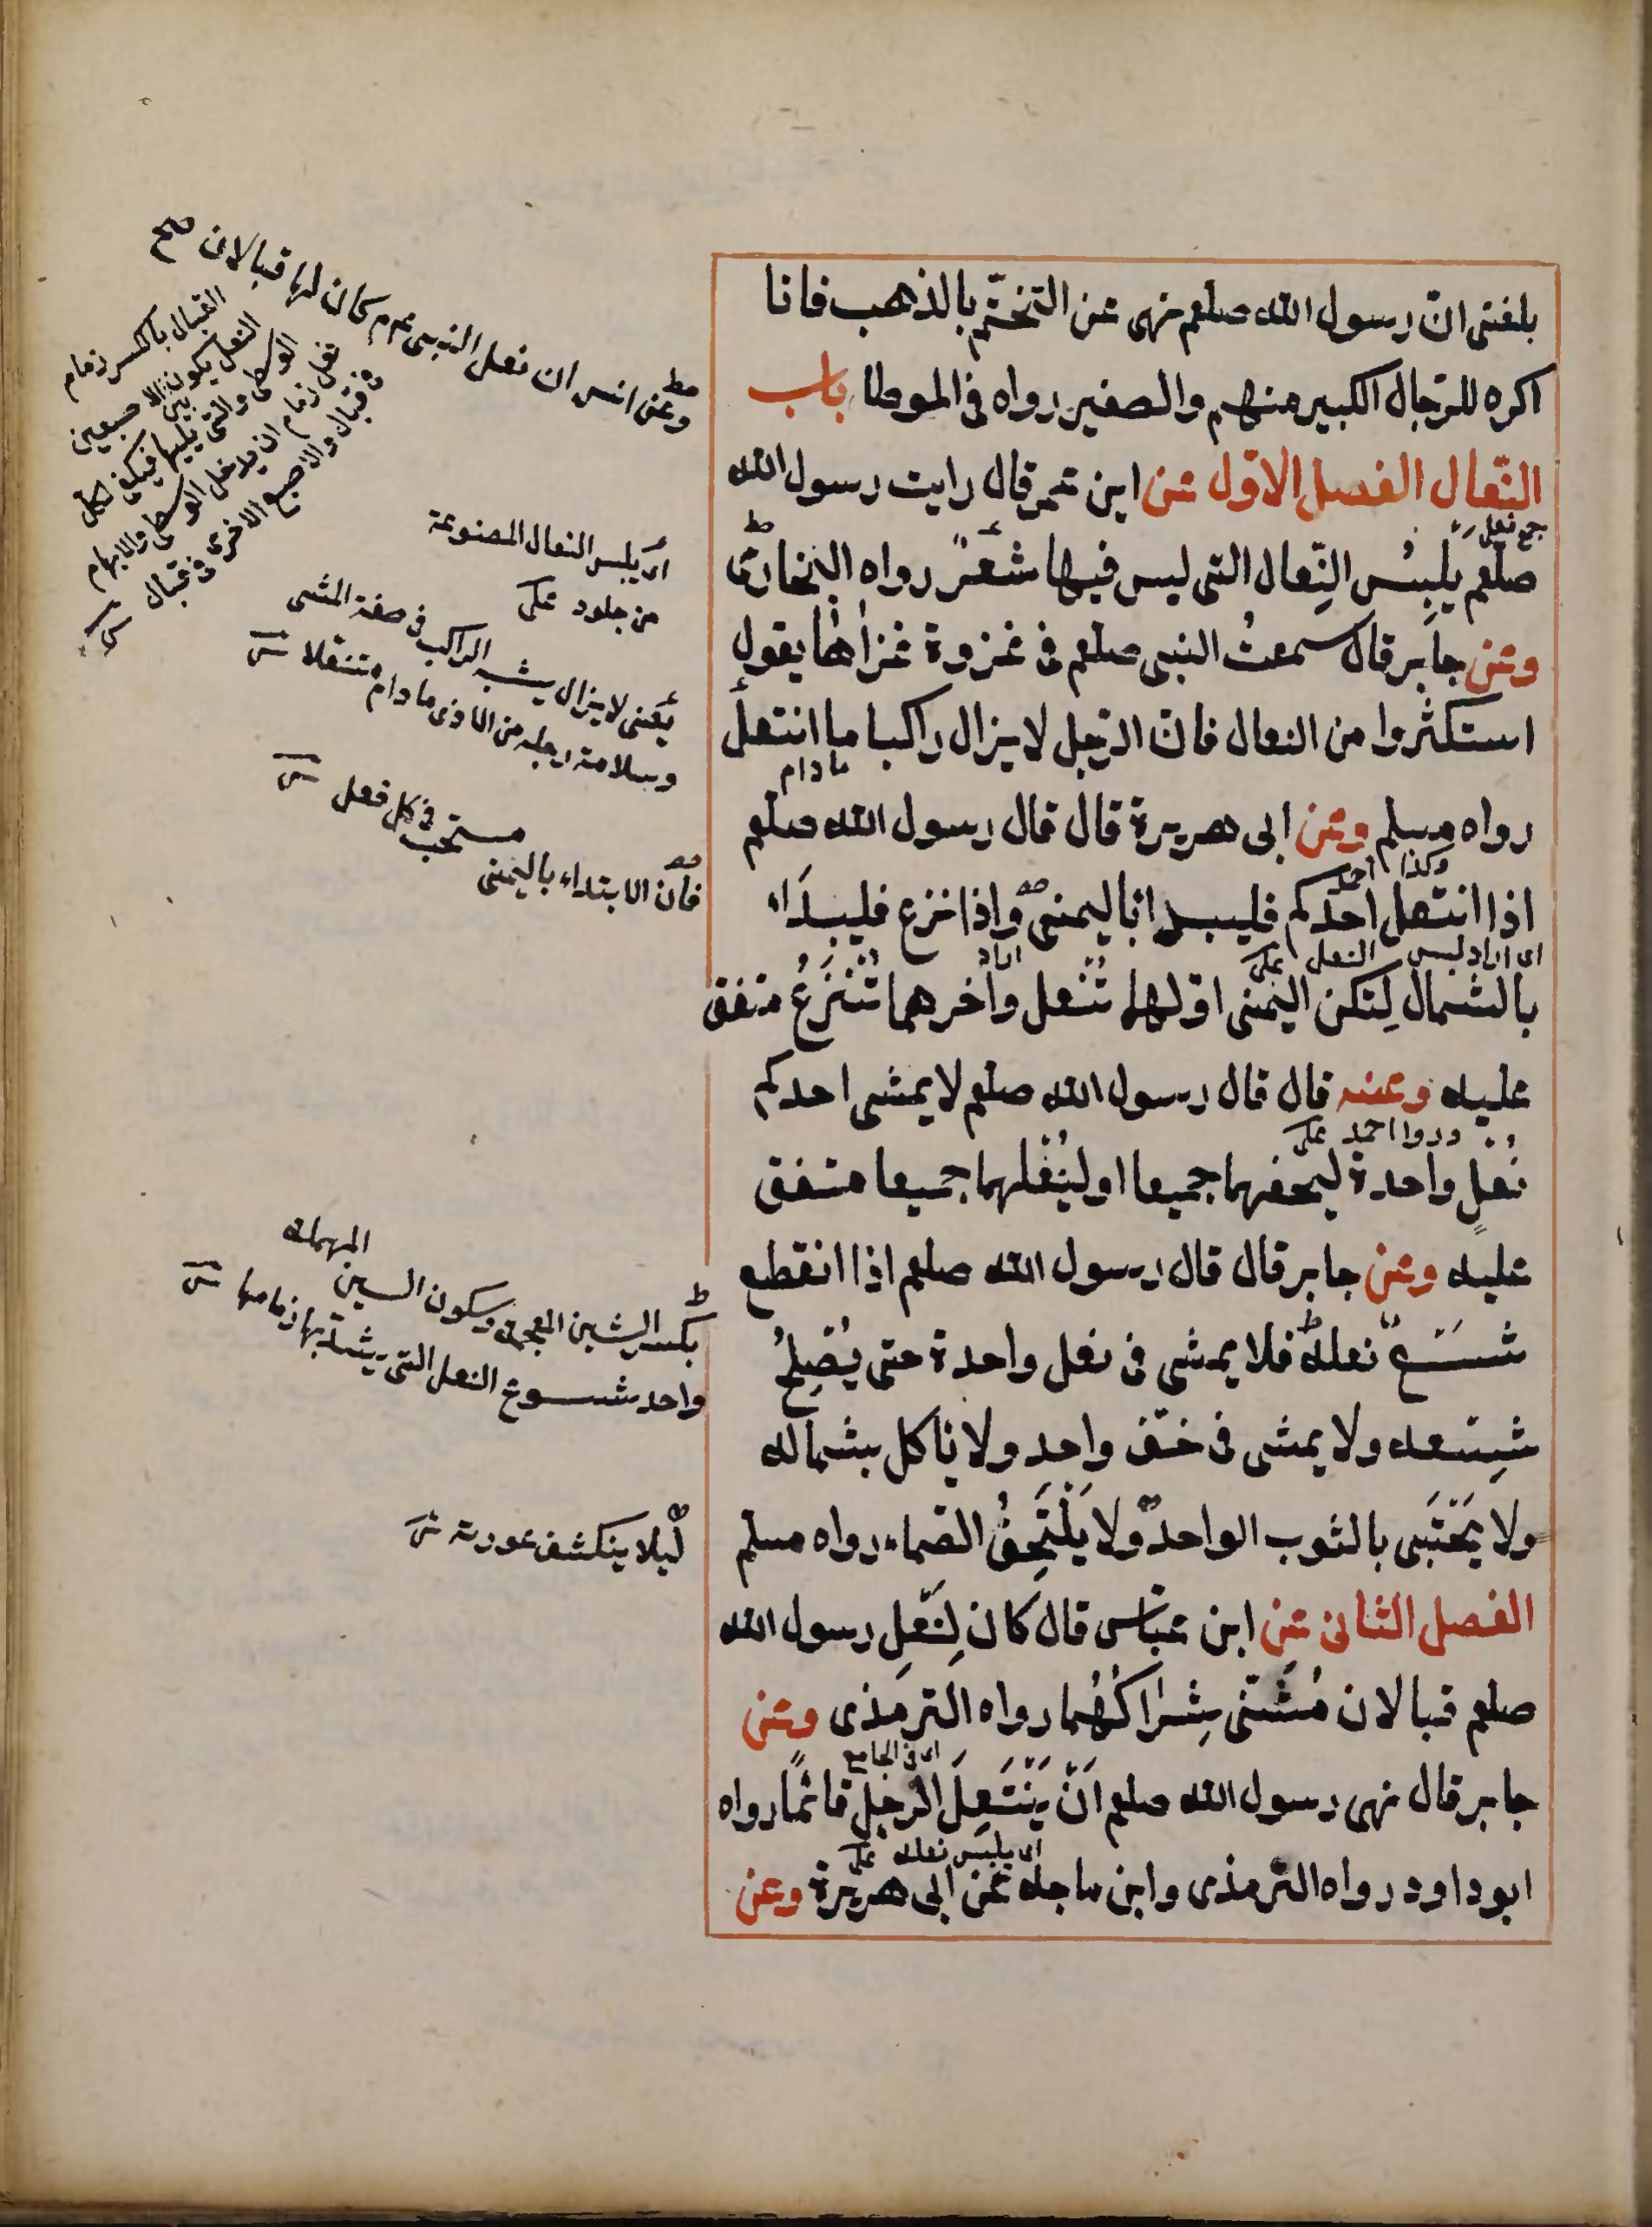 بلغنى انّ رسول الله صلعم نهى عن التختّم بالذهب فانا
اكره للرّجال الكبير منهم والصغير رواه فى الموطا باب
النّعال الفصل الاوّل عن ابن عمر قال رايت رسول الله
جمع نعل
صلعم يَلبِسُ النِّعال التى ليس فيها شَعَرٌ رواه البخارىّ
وعن جابر قال سمعتُ النبى صلعم فى غزوة غزاها يقول
استكثروا من النعال فانّ الرّجل لا يزال راكبا ما انتعل
مادام
رواه مسلم وعن ابى هريرة قال قال رسول الله صلعم
وكذا احمد
اذا انتعل احدكم فليبدا باليمنى واذا نزع فليبدَا
اى اراد لبس النعل على
اراد
بالشمال لِتكن اليُمنى اوّلهما تُنْعل واٰخرهما تُنْزَعُ متفق
عليه وعنه قال قال رسول الله صلعم لا يمشى احدكم
وروا احمد على
نُعْلٍ واحدة ليحفهما جميعا او ليُنْعلهما جميعا متفق
عليه وعن جابر قال قال رسول الله صلعم اذا انقطع
شسَعُ نعله فلا يمشى فى نعل واحدة حتى يُصْلِحُ
شِسْعه ولا يمشى فى خفّ واحد ولا ياكل بشماله
ولا يَحْتَبى بالثوب الواحد ولا يَلْتَحِفُ الصّماء رواه مسلم
الفصل الثانى عن ابن عبّاس قال كان لِنَعلِ رسول الله
صلعم قبالان مُثَنّى شِرَاكُهُما رواه الترمذى وعن
اى فى الجامع
جابر قال نهى رسول الله صلعم اَنْ يَنْتَعِلَ الرّجل قائمًا رواه
اى يلبس نعله على
ابو داود رواه الترمذى وابن ماجه عن ابى هريرة وعن
وعن انس ان نعل النبى عم كان لها قبالان صح
القبال بالكسر زمام
النعل يكون بين الاصبعين
الوسطى والتى يليها فيكون لكل
نعل زمام ان يدخل الوسطى والابهام
فى قبال والاصبع الاخرى فى قبال
اى يلبس النعال المصنوعة
من جلود على
يعنى لا يزال يشبه الراكب فى صفة المشى
وسلامة رجله من الاذى ما دام متنعلا
فان الابتداء باليمنى
مستحب فى كل فعل
بكسر الشين المعجمة وسكون السين المهملة
واحد شسوع النعل التى يشدّ بها زمامها
ليلا ينكشف عورته